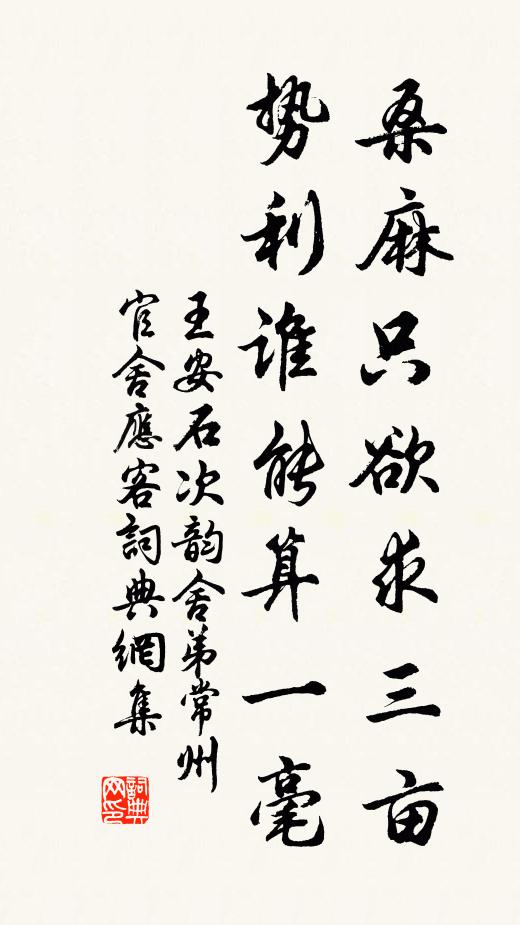 桑麻只欲求三亩
势利谁能算一毫
王安石次韵舍弟常州
官舍應客詞典網集
詞典網印